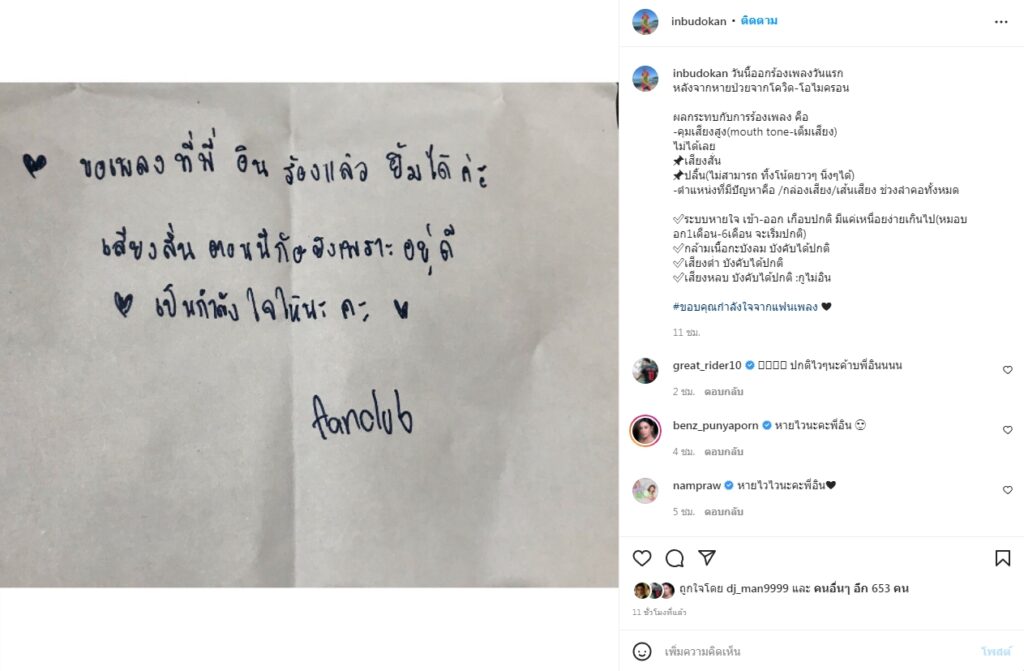 ♥ ขอเพลง ที่พี่ อิน ร้องแล้ว ยิ้มได้ ค่ะ
เสียงสั่น ตอนนี้ก็ยังเพราะอยู่ดี
♥ เป็นกำลังใจให้นะ คะ ♥
fanclub
inbudokan • ติดตาม
inbudokan วันนี้ออกร้องเพลงวันแรก
หลังจากหายป่วยจากโควิด-โอไมครอน
ผลกระทบกับการร้องเพลง คือ
-คุมเสียงสูง(mouth tone-เต็มเสียง)
ไม่ได้เลย
📌เสียงสั่น
📌ปลิ้น(ไม่สามารถ ทิ้งโน้ตยาวๆ นิ่งๆได้)
-ตำแหน่งที่มีปัญหาคือ /กล่องเสียง/เส้นเสียง ช่วงลำคอทั้งหมด
✅ระบบหายใจ เข้า-ออก เกือบปกติ มีแค่เหนื่อยง่ายเกินไป(หมอบ
อก1เดือน-6เดือน จะเริ่มปกติ)
✅กล้ามเนื้อกะบังลม บังคับได้ปกติ
✅เสียงต่ำ บังคับได้ปกติ
✅เสียงหลบ บังคับได้ปกติ :กูไม่อิน
#ขอบคุณกำลังใจจากแฟนเพลง 🖤
11 ชม.
great_rider10 ปกติไวๆนะค้าบพี่อินนนน
2 ชม. ตอบกลับ
benz_punyaporn หายไวนะคะพี่อิน
4 ชม. ตอบกลับ
nampraw หายไวไวนะคะพี่อิน🖤
5 ชม. ตอบกลับ
ถูกใจโดย dj_man9999 และ คนอื่นๆ อีก 653 คน
11 ชั่วโมงที่แล้ว
เพิ่มความคิดเห็น
โพสต์